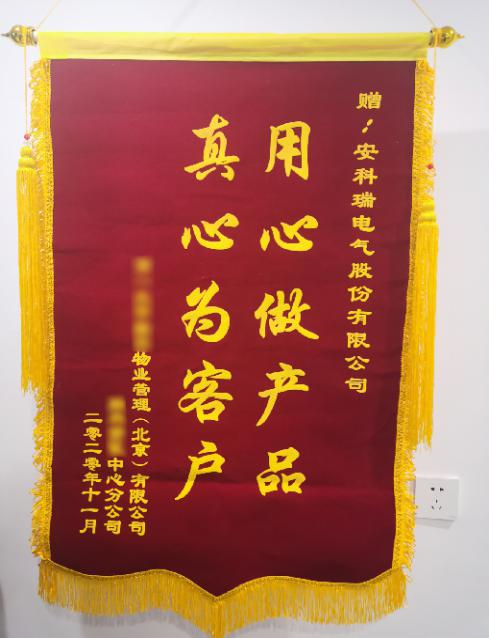 赠：安科瑞电气股份有限公司
用心做产品
真心为客户
物业管理（北京）有限公司
中心分公司
二零二零年十一月